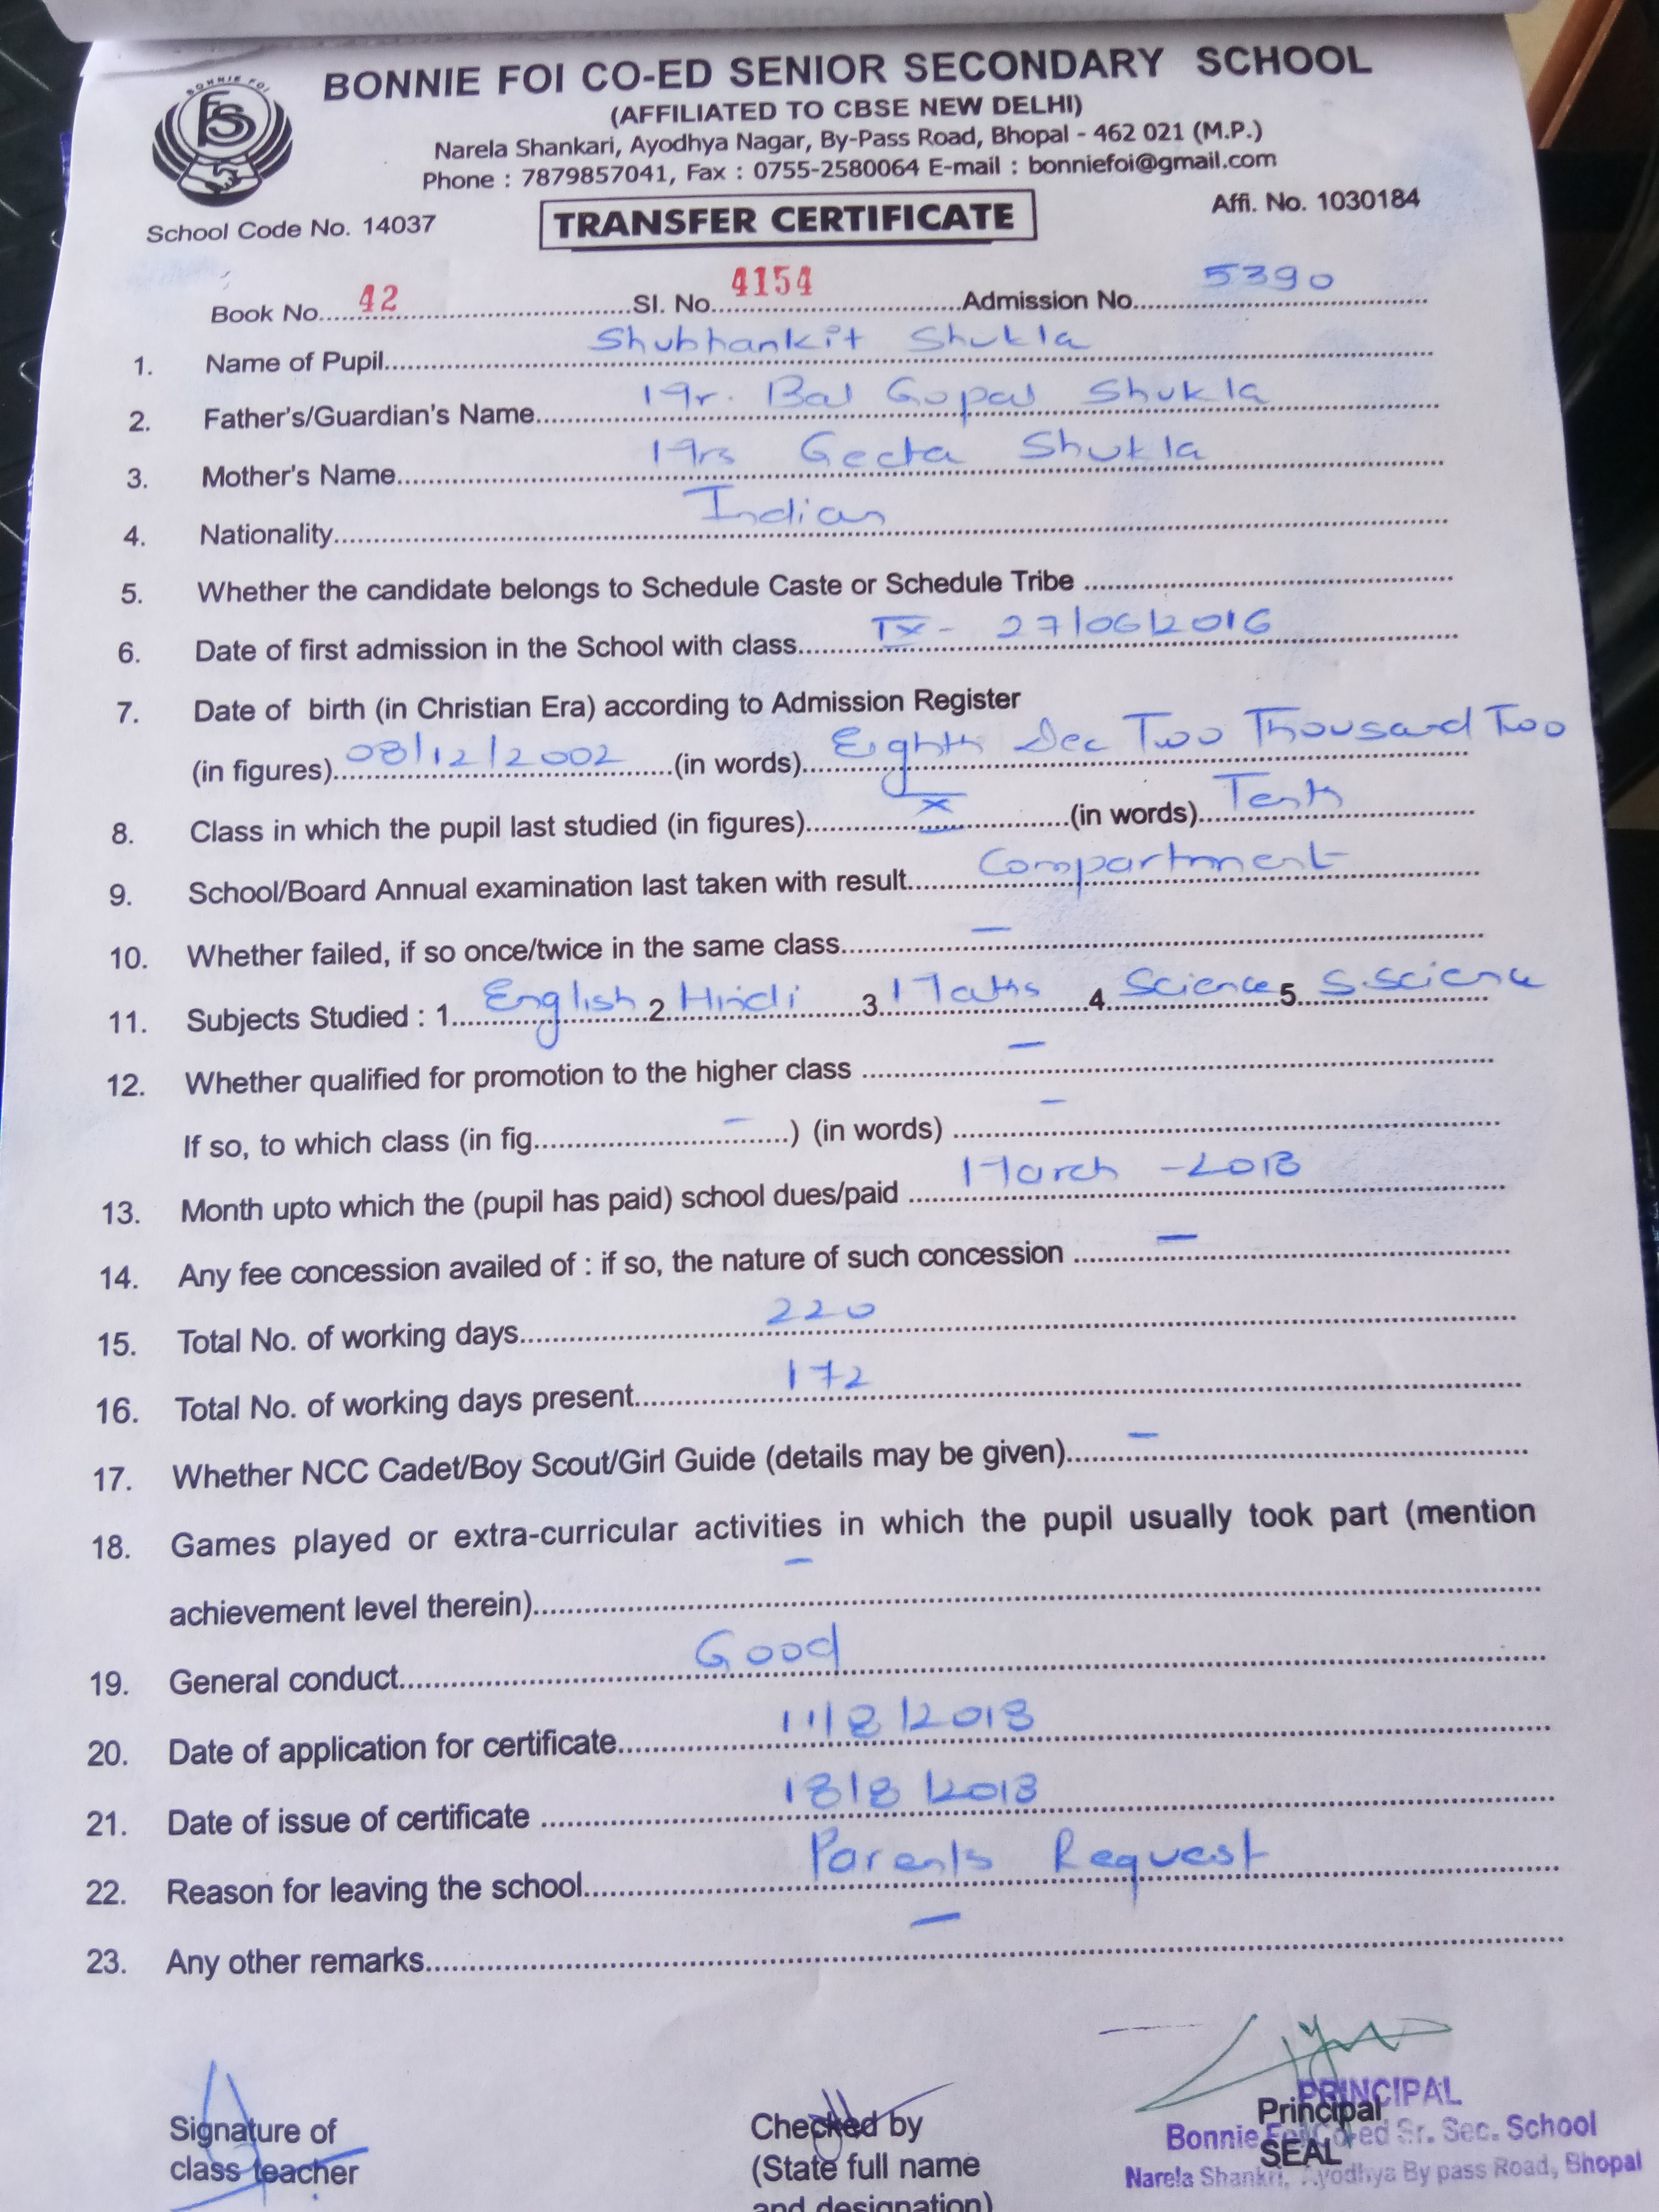 BONNIE FOI
FS
BONNIE FOI CO-ED SENIOR SECONDARY SCHOOL
(AFFILIATED TO CBSE NEW DELHI)
Narela Shankari, Ayodhya Nagar, By-Pass Road, Bhopal - 462 021 (M.P.)
Phone : 7879857041, Fax : 0755-2580064 E-mail : bonniefoi@gmail.com
School Code No. 14037 TRANSFER CERTIFICATE Affi. No. 1030184
Book No. 42 Sl. No. 4154 Admission No. 5390
1. Name of Pupil Shubhankit Shukla
2. Father's/Guardian's Name Mr. Bal Gopal Shukla
3. Mother's Name Mrs Geeta Shukla
4. Nationality Indian
5. Whether the candidate belongs to Schedule Caste or Schedule Tribe
6. Date of first admission in the School with class IX - 27/06/2016
7. Date of birth (in Christian Era) according to Admission Register
(in figures) 08/12/2002 (in words) Eighth Dec Two Thousand Two
8. Class in which the pupil last studied (in figures) X (in words) Tenth
9. School/Board Annual examination last taken with result Compartment
10. Whether failed, if so once/twice in the same class –
11. Subjects Studied : 1 English 2 Hindi 3 Maths 4 Science 5 S.Science
12. Whether qualified for promotion to the higher class –
If so, to which class (in fig. – ) (in words) –
13. Month upto which the (pupil has paid) school dues/paid March - 2018
14. Any fee concession availed of : if so, the nature of such concession –
15. Total No. of working days 220
16. Total No. of working days present 172
17. Whether NCC Cadet/Boy Scout/Girl Guide (details may be given) –
18. Games played or extra-curricular activities in which the pupil usually took part (mention
achievement level therein) –
19. General conduct Good
20. Date of application for certificate 11/8/2018
21. Date of issue of certificate 18/8/2018
22. Reason for leaving the school Parents Request
23. Any other remarks –
PRINCIPAL
Signature of Checked by Principal
Bonnie Foi Co-ed Sr. Sec. School
class teacher (State full name SEAL
Narela Shankri, Ayodhya By pass Road, Bhopal
and designation)